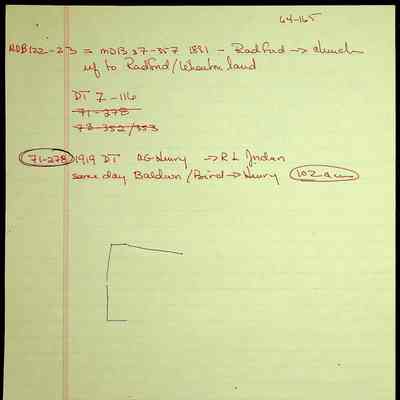 64-165
MDB 122-23 = MDB 37-357 1881 - Radford → church
up to Radford/Wheaton land
DT 7-116
71-278
73-352/353
71-278 1919 DT AG Henry → R L Jordan
same day Baldwin/Baird → Henry 102 ac